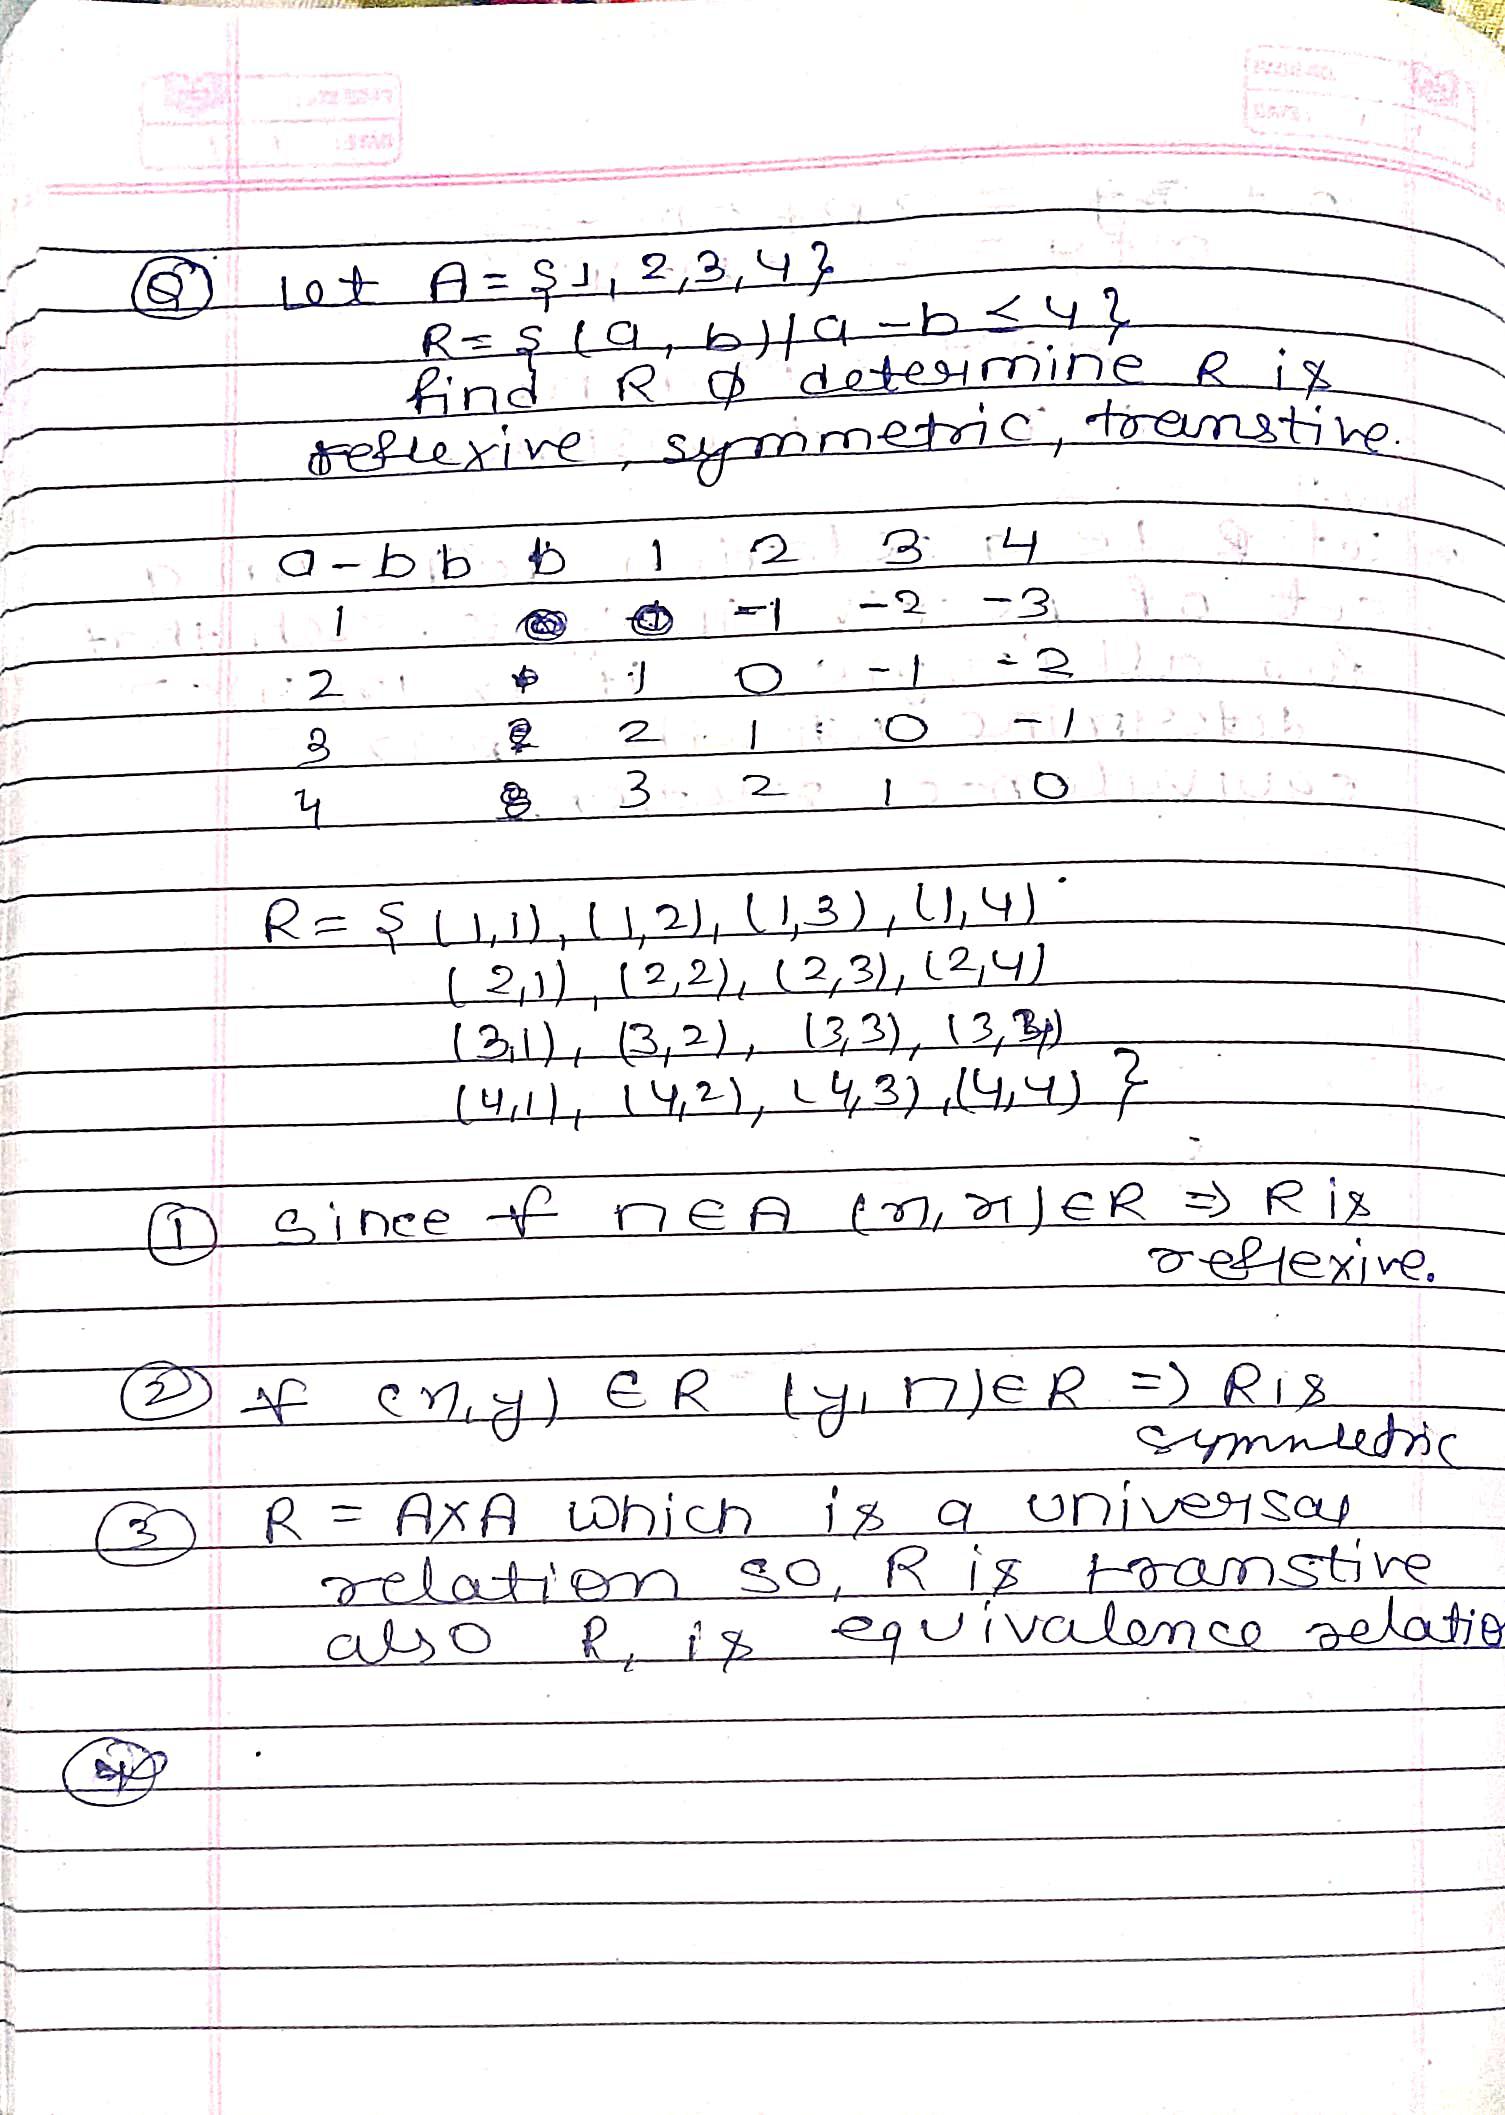 Q Let A = {1, 2, 3, 4}
R = {(a, b) / a - b ≤ 4}
find R & determine R is
reflexive, symmetric, transtive.
a-b b 1 2 3 4
1 0 -1 -2 -3
2 1 0 -1 -2
3 2 1 0 -1
4 3 2 1 0
R = { (1,1), (1,2), (1,3), (1,4)
(2,1), (2,2), (2,3), (2,4)
(3,1), (3,2), (3,3), (3,4)
(4,1), (4,2), (4,3), (4,4) }
1 Since if x ∈ A (x, x) ∈ R ⇒ R is
reflexive.
2 If (x, y) ∈ R (y, x) ∈ R ⇒ R is
symmetric
3 R = A×A which is a universal
relation so, R is transtive
also R, is equivalence relatio